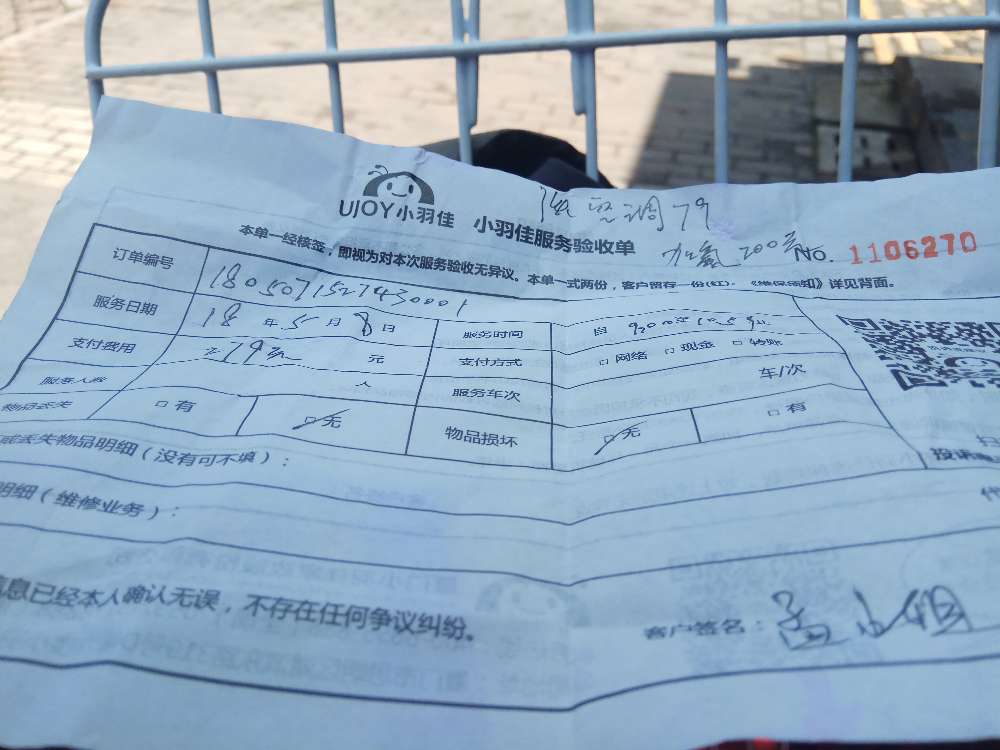 空调79
UJOY小羽佳 小羽佳服务验收单
加氟200元 No. 1106270
本单一经核签,即视为对本次服务验收无异议。本单一式两份,客户留存一份(红)。《维保须知》详见背面。
订单编号 1805071527430001
服务日期 18年5月8日 服务时间 自
支付费用 279元 元 支付方式 □网络 □现金 □转账
服务人数 人 服务车次 车/次
物品丢失 □有 □无 物品损坏 □无 □有
或丢失物品明细(没有可不填):
投诉
明细(维修业务):
信息已经本人确认无误,不存在任何争议纠纷。
客户签名:孟小姐